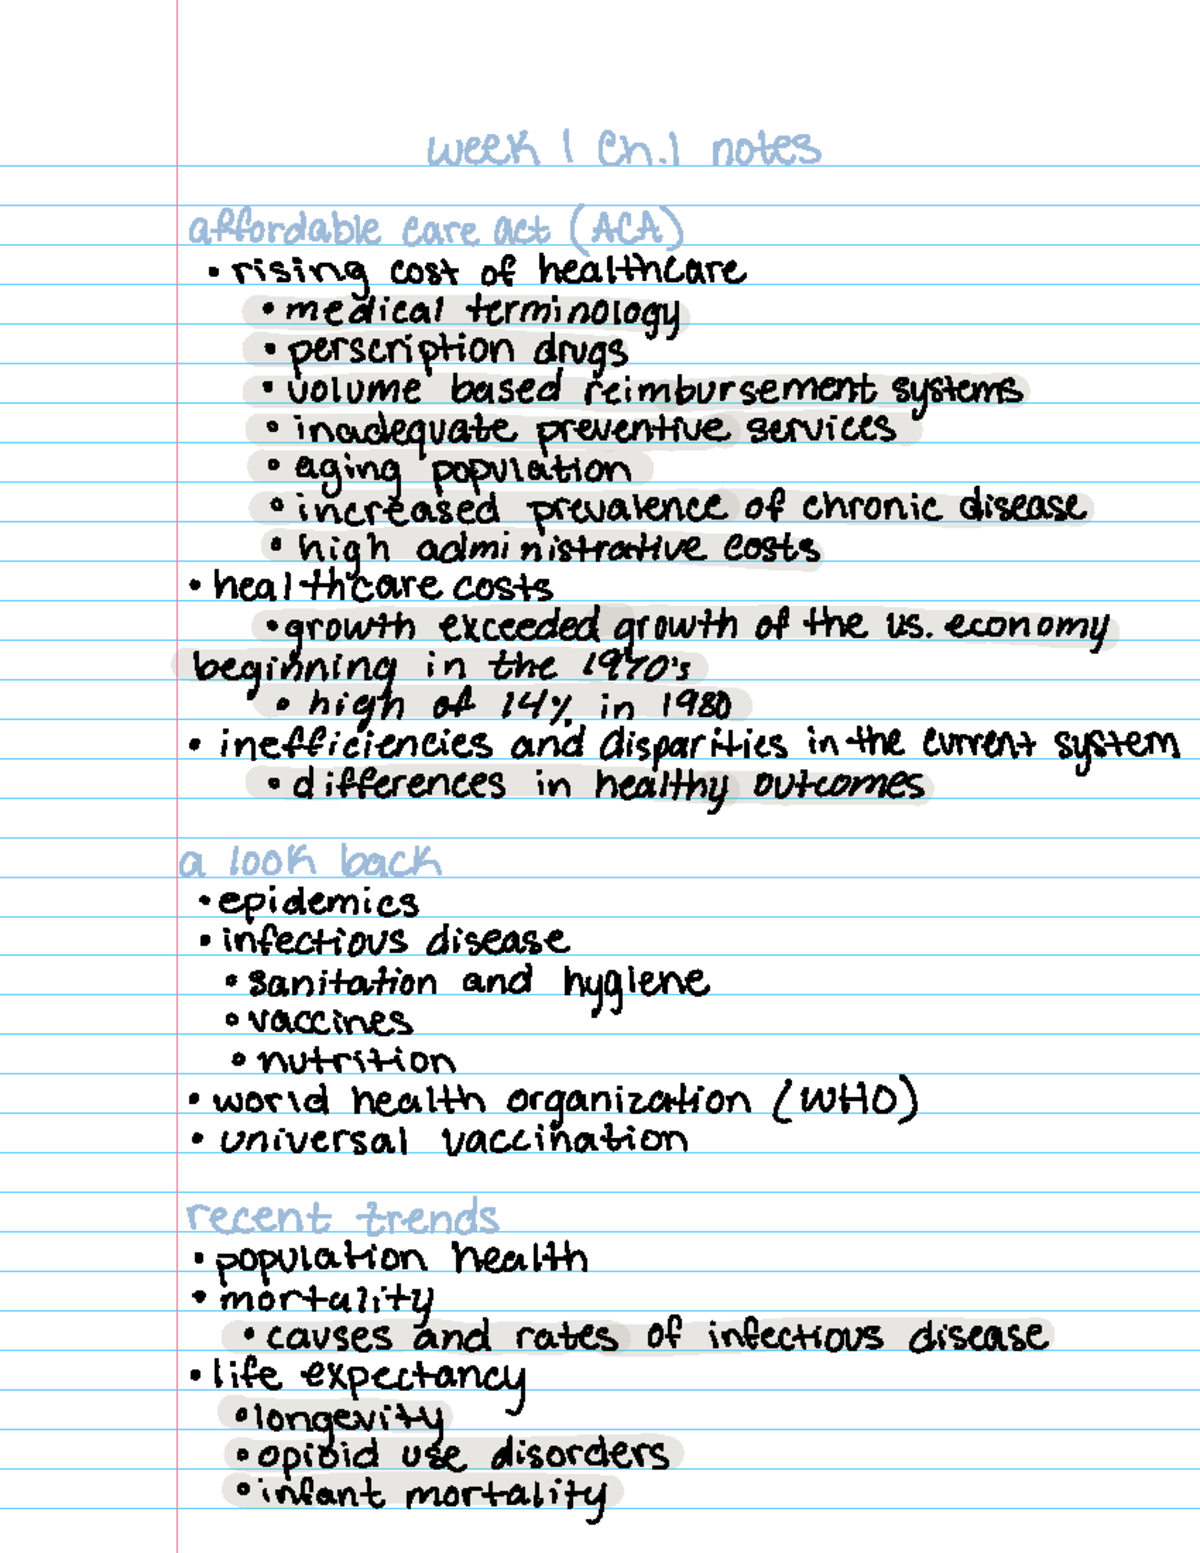 week 1 Ch.1 notes
affordable care act (ACA)
• rising cost of healthcare
• medical terminology
• perscription drugs
• volume based reimbursement systems
• inadequate preventive services
• aging population
• increased prevalence of chronic disease
• high administrative costs
• healthcare costs
• growth exceeded growth of the us. economy
beginning in the 1970's
• high of 14% in 1980
• inefficiencies and disparities in the current system
• differences in healthy outcomes
a look back
• epidemics
• infectious disease
• sanitation and hygiene
• vaccines
• nutrition
• world health organization (WHO)
• universal vaccination
recent trends
• population health
• mortality
• causes and rates of infectious disease
• life expectancy
• longevity
• opioid use disorders
• infant mortality